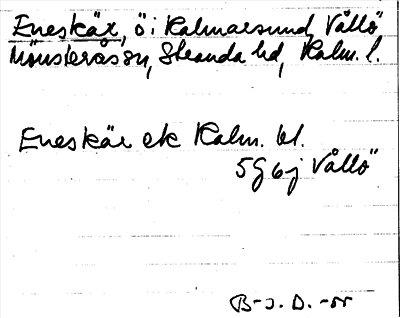 Eneskär, ö i Kalmarsund, Vållö
Mönsterås sn, Stranda hd, Kalm. l.
Eneskär ek Kalm. bl.
5G6j Vållö
B-J. D. -rr